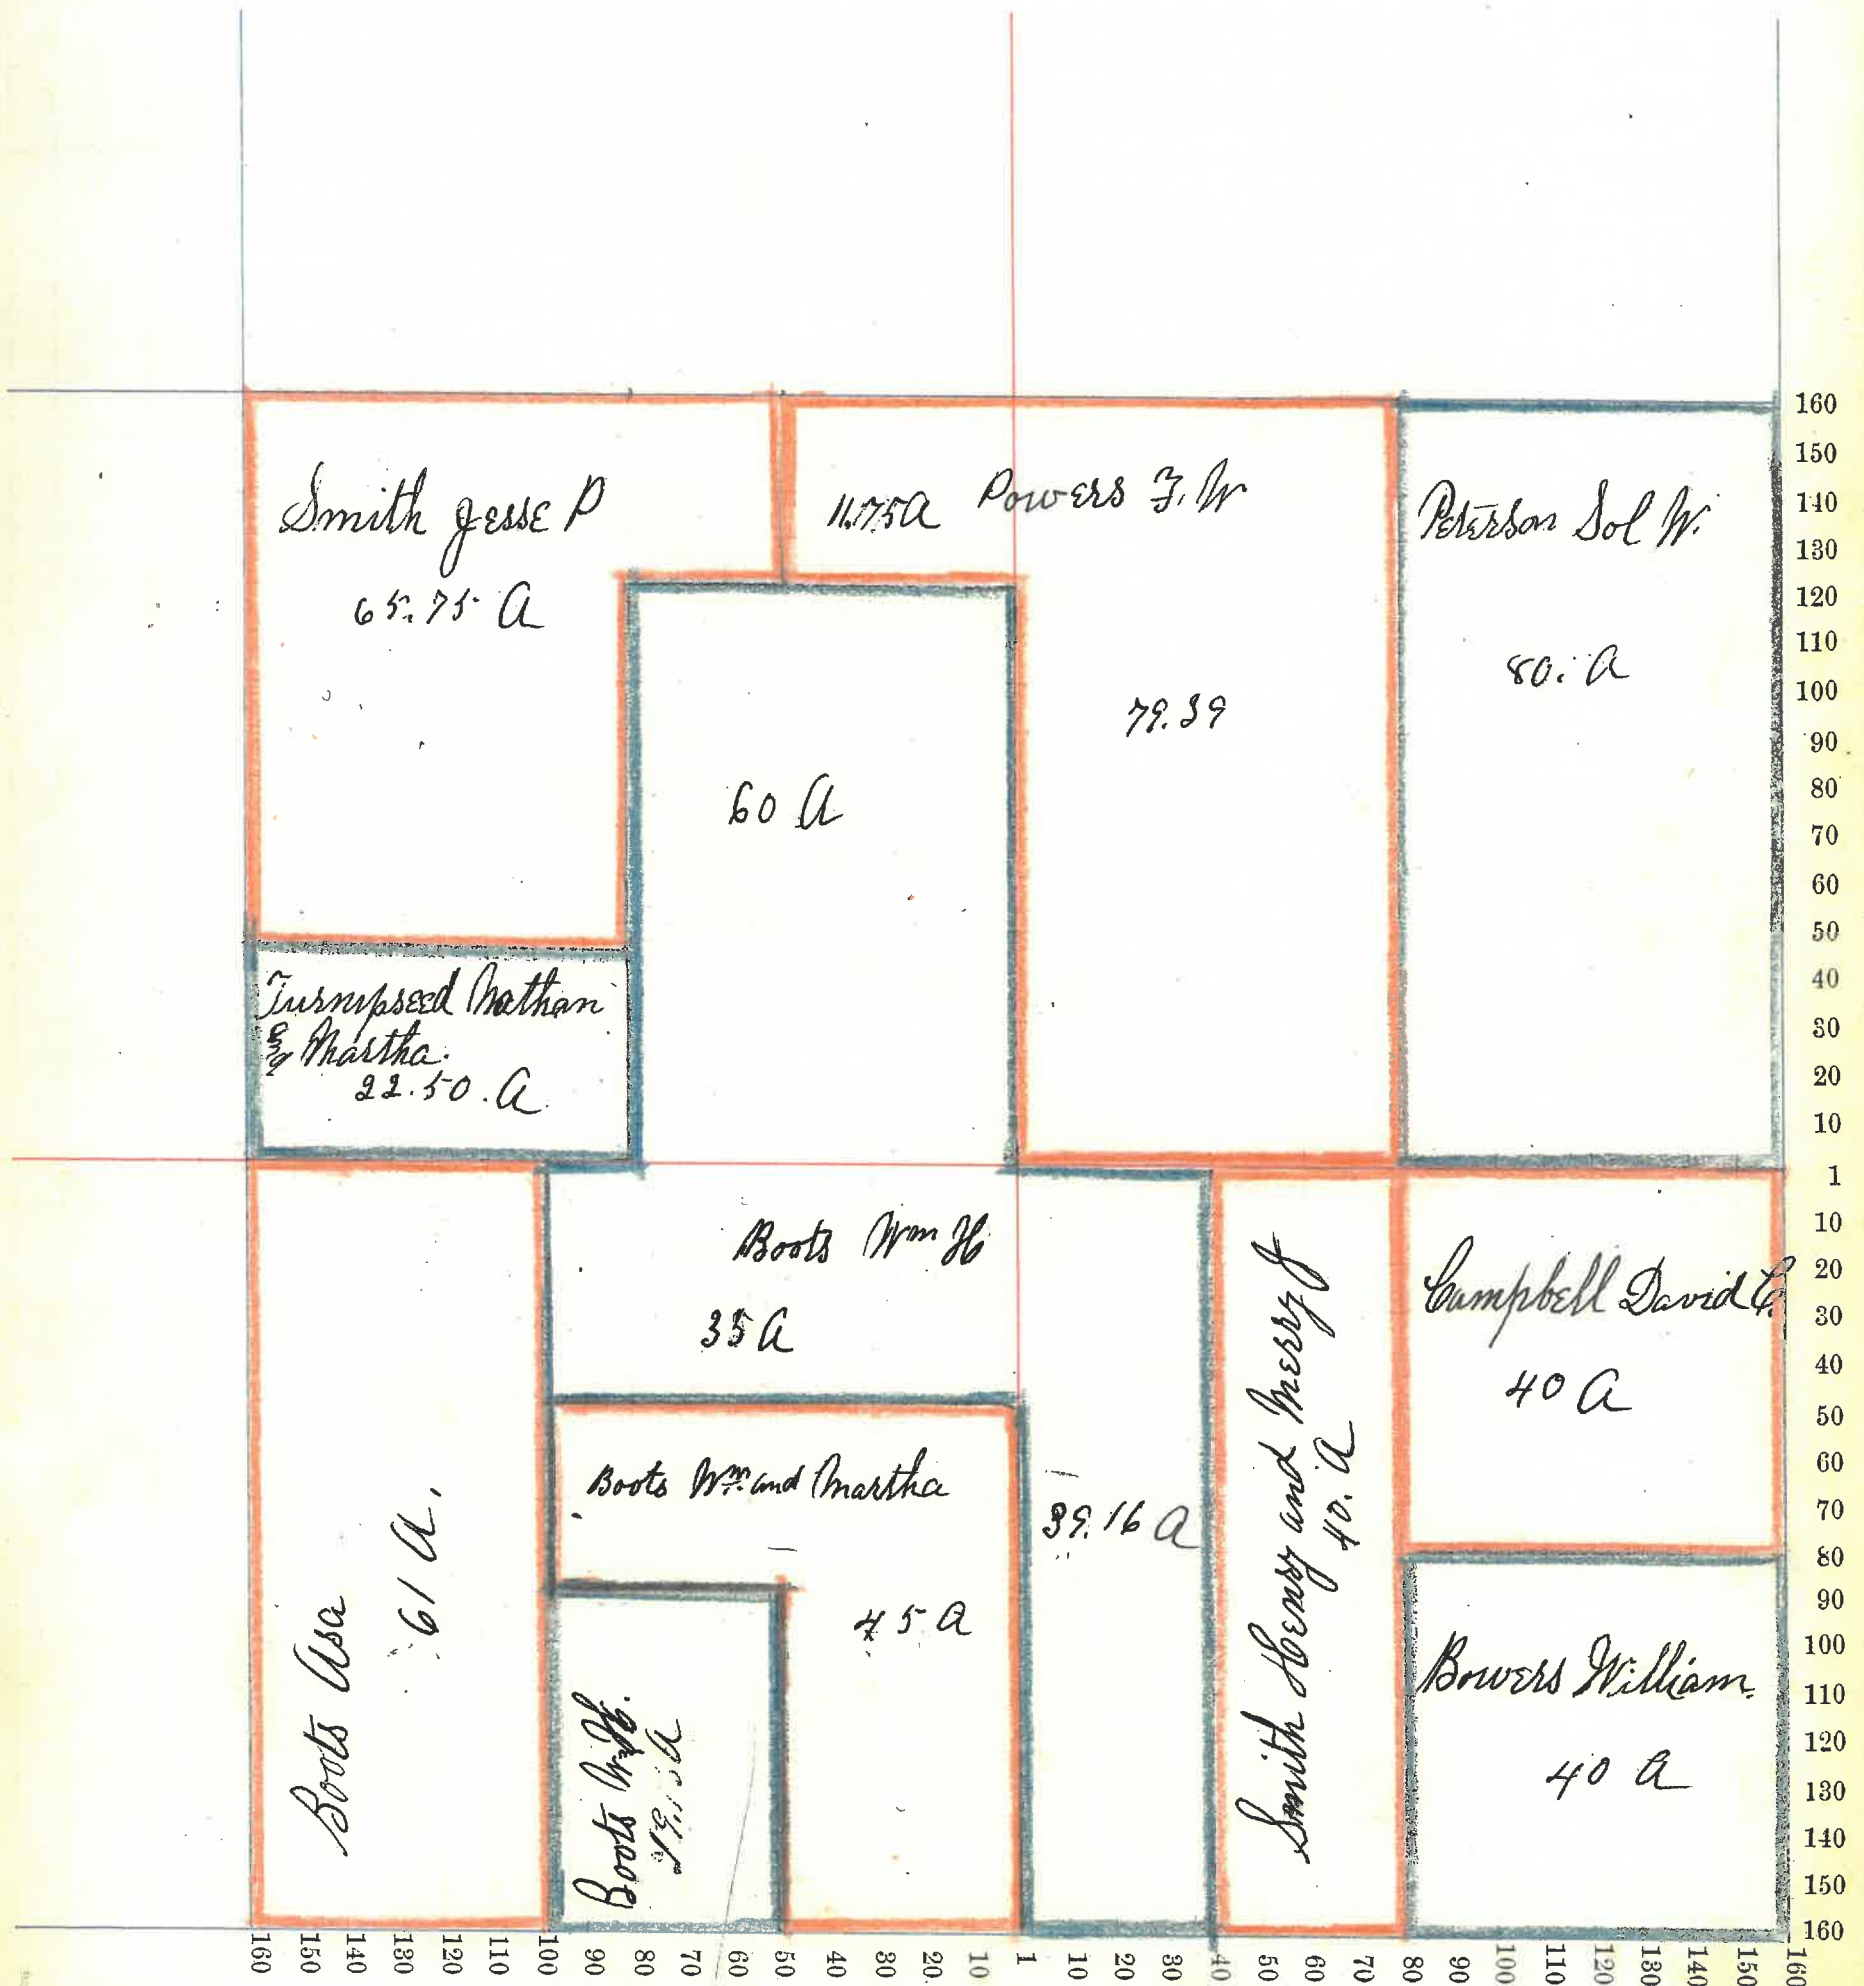 Smith Jesse P
65.75 A
11.75 A Powers F. W
79.39
Peterson Sol W.
80. A
60 A
Turnipseed Nathan
& Martha.
22.50. A.
Boots Asa
61 A.
Boots Wm H
35 A
Boots Wm. and Martha
45 A
Boots Wm H.
39.16 A
Smith Henry and Merry J
40. A
Campbell David C.
40 A
Bowers William.
40 A
160
150
140
130
120
110
100
90
80
70
60
50
40
30
20
10
1
10
20
30
40
50
60
70
80
90
100
110
120
130
140
150
160
160 150 140 130 120 110 100 90 80 70 60 50 40 30 20 10 1 10 20 30 40 50 60 70 80 90 100 110 120 130 140 150 160